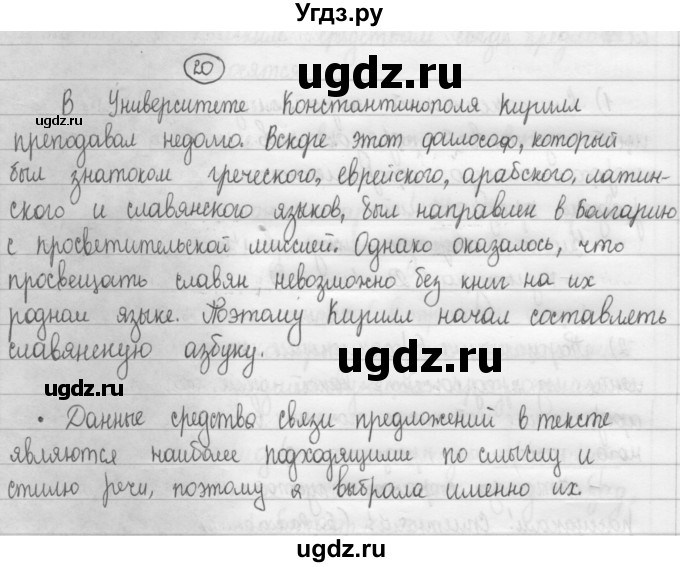 Угдз.ру
20
ugdz.ru
В Университете Константинополя Кирилл
преподавал недолго. Вскоре этот философ, который
был знатоком греческого, еврейского, арабского, латин-
ского и славянского языков, был направлен в Болгарию
с просветительской миссией. Однако оказалось, что
просвещать славян невозможно без книг на их
родном языке. Поэтому Кирилл начал составлять
славянскую азбуку.
ugdz.ru
ugdz.ru
• Данные средства связи предложений в тексте
являются наиболее подходящими по смыслу и
стилю речи, поэтому я выбрала именно их.
ugdz.ru